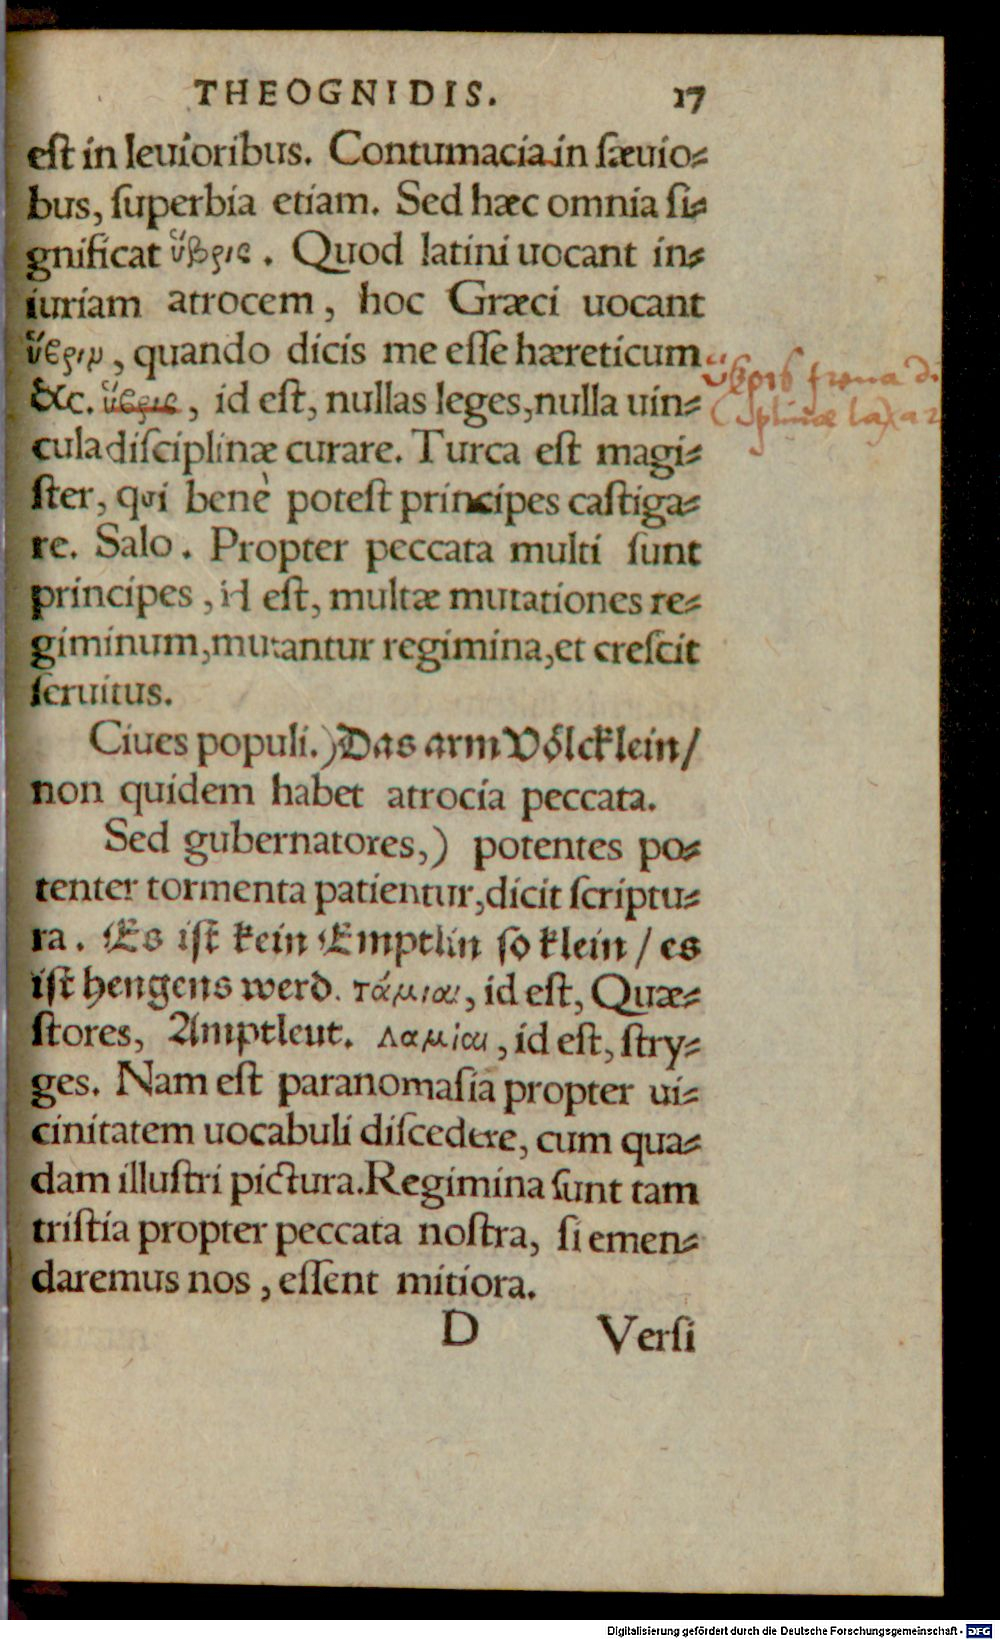 THEOGNIDIS. 17
est in leuioribus. Contumacia in sæuio⸗
bus, superbia etiam. Sed hæc omnia si⸗
gnificat ὕβρις. Quod latini uocant in⸗
iuriam atrocem, hoc Græci uocant
ὕβριν, quando dicis me esse hæreticum
&c. ὕβρις, id est, nullas leges, nulla uin⸗
cula disciplinæ curare. Turca est magi⸗
ster, qui benè potest principes castiga⸗
re. Salo. Propter peccata multi sunt
principes, id est, multæ mutationes re⸗
giminum, mutantur regimina, et crescit
seruitus.
Ciues populi.) Das arm Völcklein/
non quidem habet atrocia peccata.
Sed gubernatores,) potentes po⸗
tenter tormenta patientur, dicit scriptu⸗
ra. Es ist kein Emptlin so klein / es
ist hengens werd. τάμιαι, id est, Quæ⸗
stores, Amptleut. λαμίαι, id est, stry⸗
ges. Nam est paranomasia propter ui⸗
cinitatem uocabuli discedere, cum qua⸗
dam illustri pictura. Regimina sunt tam
tristia propter peccata nostra, si emen⸗
daremus nos, essent mitiora.
D Versi
ὕβρις frena di
sciplinæ laxar
Digitalisierung gefördert durch die Deutsche Forschungsgemeinschaft - DFG